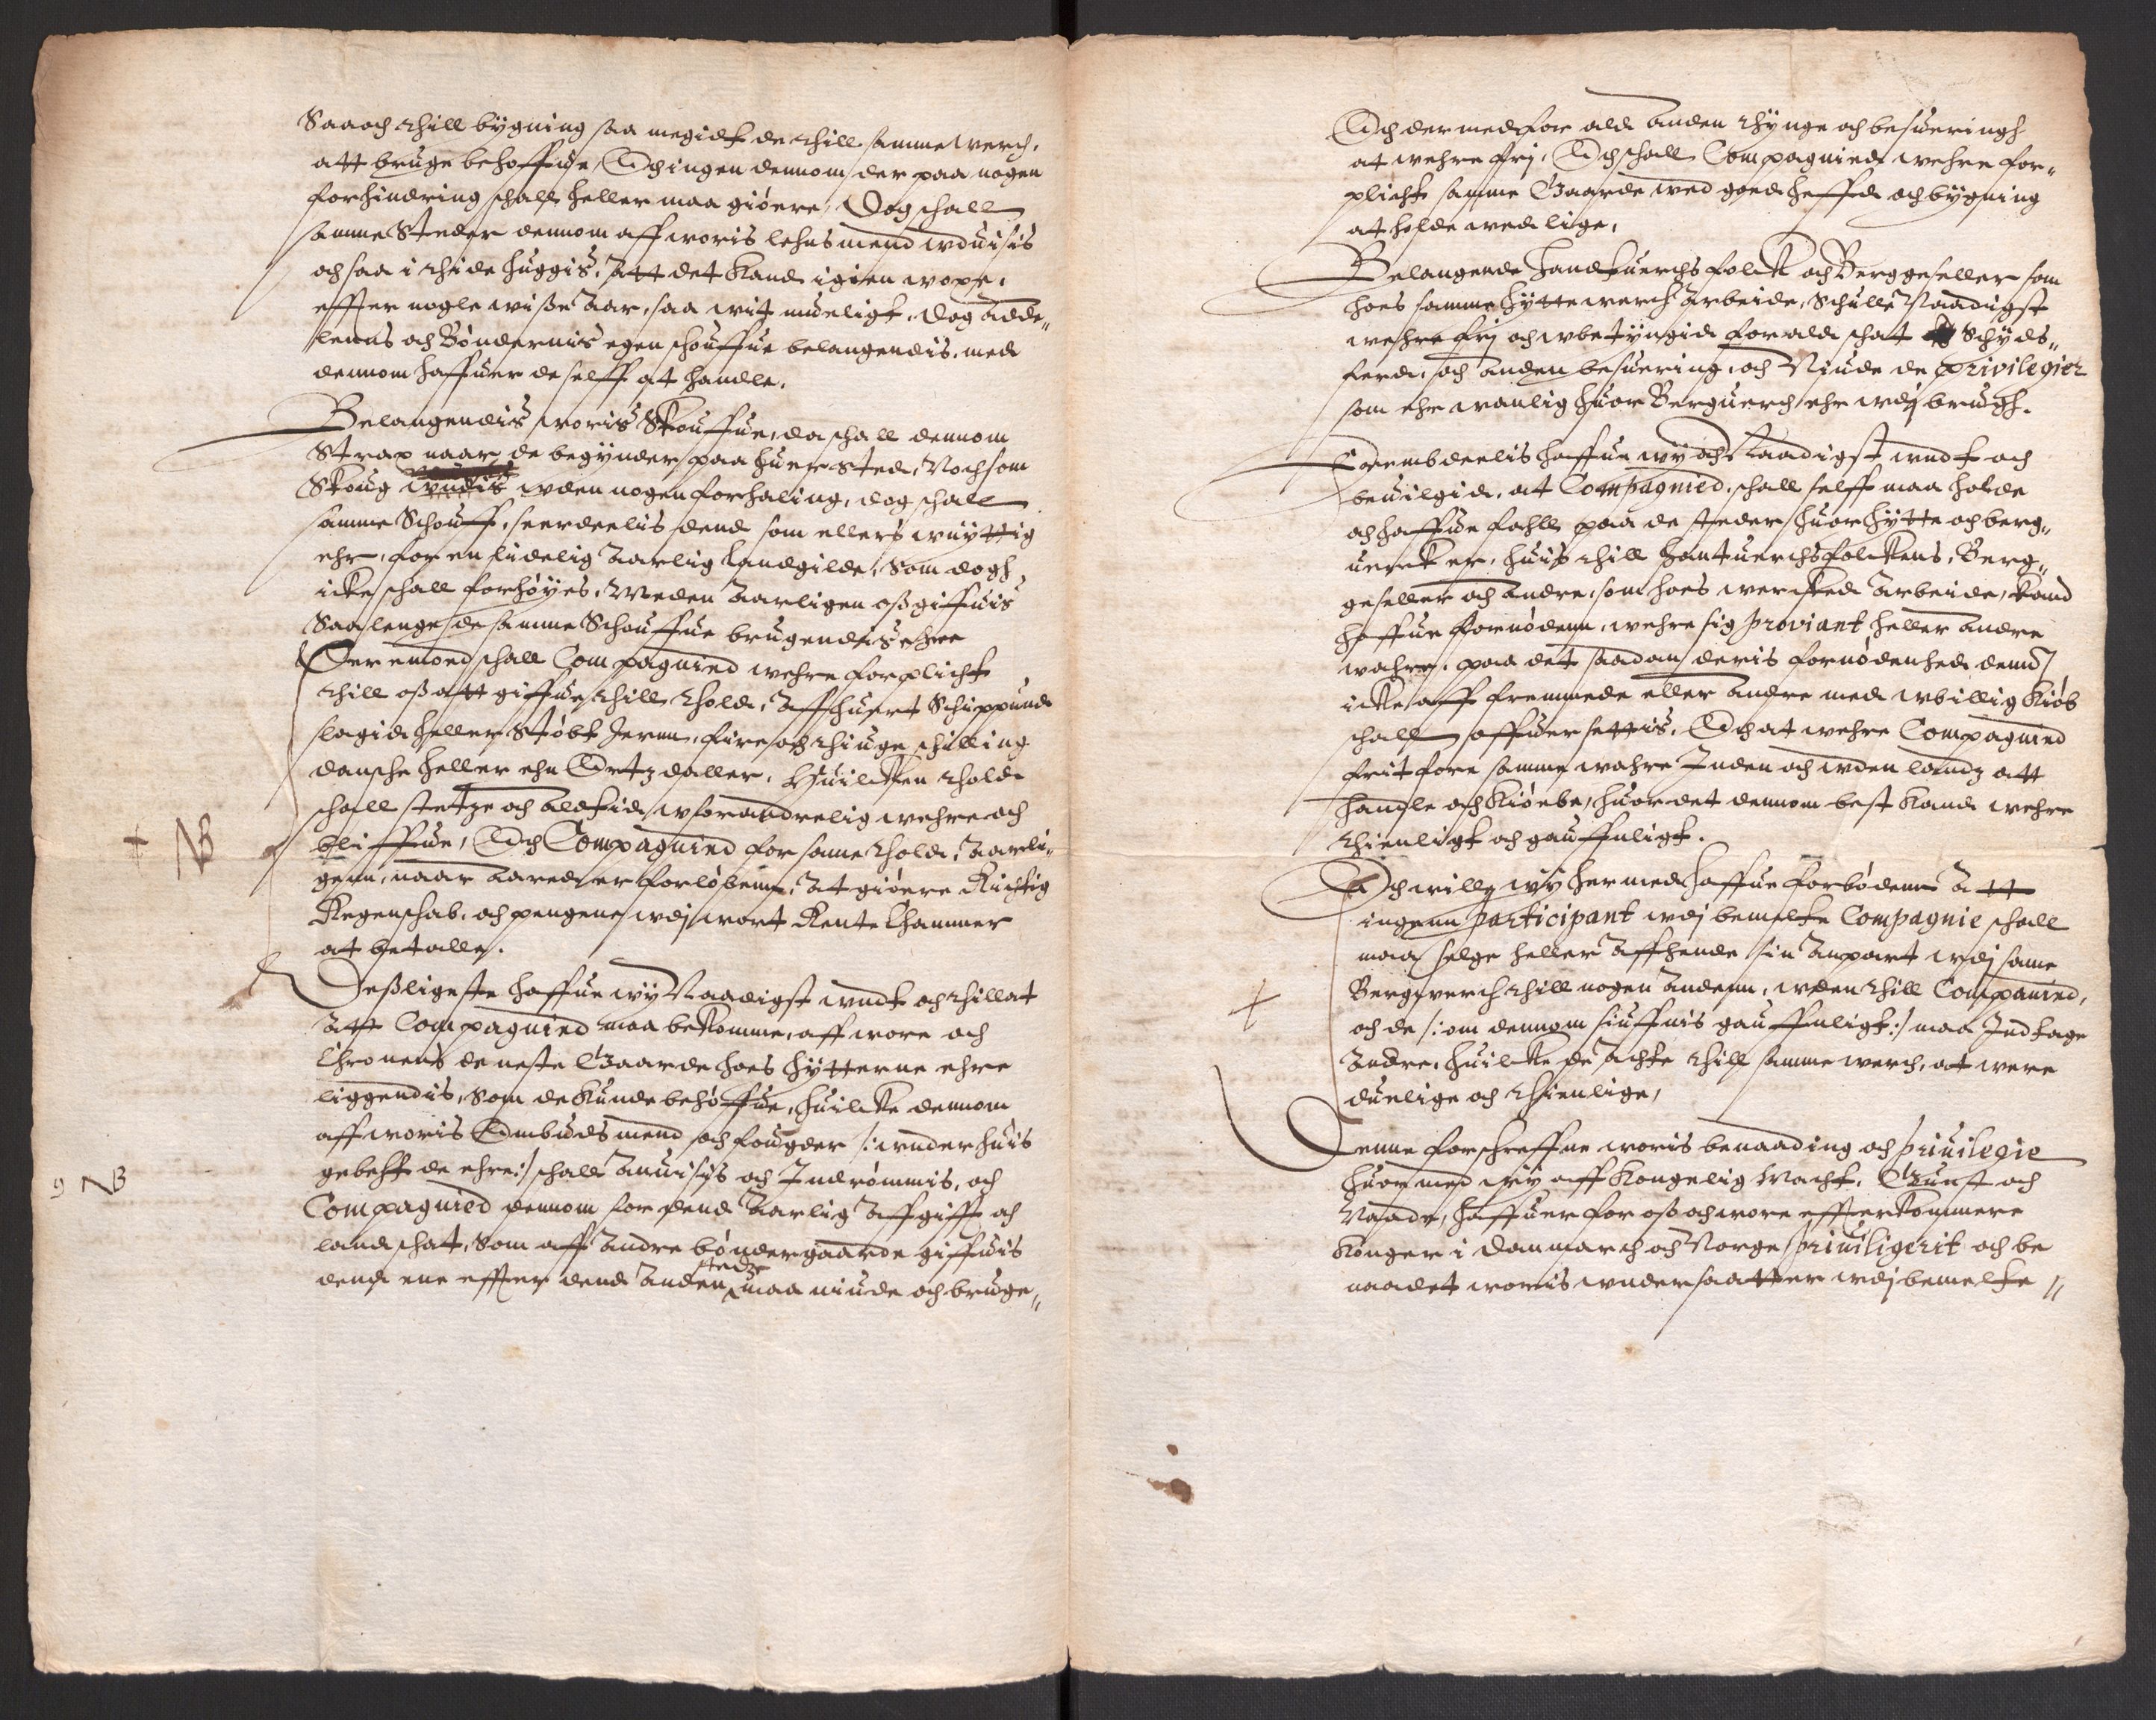 Saa och thill bygning saa megidt de thill samme werch,
att bruge behoffwe, Och ingen dennom der paa nogen
forhindring schall heller maa giöere, Dog schall
samme Steder dennom aff woris lehns mend wduisis
och saa i thide huggis, att det kand igien woxe,
effter nogle wisse Aar, saa wit mueligt, dog Adde„
lens och Böndernis egen schouffue belangendis, med
dennom haffuer de selff at handle.
Belangendis woris Skouffue, da schall dennom
Strax naar de begynder paa huer sted, Noch som
Skoug wduisis wden nogen forhaling, dog schall
samme Schouff, serdeelis dend som ellers wnyttig
ehr, for en lidelig Aarlig landgilde, Som dogh
icke schall forhöyes, Meden Aarligen oss giffuis
Saa lenge de samme Schouffue brugendis ehre
Der emod schall Compagnied wehre forplicht
thill oss att giffue, thill thold, Aff huert Schippund
slagid heller Stöbt Jern, fire och thiuge schilling
dansche heller ehn Ortz daller, Huilcken thold
schall stetze och Altid wforandrelig wehre och
bliffue, Och Compagnied for same thold, Aarli„
genn, naar Aared er forlöbenn, At giöere Richtig
Regenschab, och pengene wdj wort Rente Chammer
at betalle.
+ NB
Desligeste haffue wy Naadigst wndt och thillat
Att Compagnied maa bekomme, aff wore och
Chronens de neste Gaarde hoes hytterne ehre
liggendis, Som de kunde behöffue, huilcke dennom
aff woris Ombuds mend och fougder /: wnder huis
gebehst de ehre :/ schall Anuisis och Indrömmis, och
Compagnied dennom for dend Aarlig Affgifft och
landschat, Som aff Andre bönder gaarde giffuis
dend ene effter dend Anden stedze maa niude och bruge„
9 NB
Och dermed for ald Anden thynge och besueringh
at wehre frj, Och schall Compagnied wehre for„
plicht samme Gaarde wed goed heffd och bygning
at holde wed lige,
Belangende Handtuerchs folck och Berggeseller som
hoes samme hyttewerch Arbeide, Schulle Naadigst
wehre frj och wbetyngid for ald schat Schyds„
ferd, och Anden besuering, och Niude de privilegier
som ehr wanlig huor Berguerch ehr wdj brugh.
Fremdeelis haffue wy och Naadigst wndt och
beuilgid, at Compagnied schall selff maa holde
och haffue fahll paa de steder huor hytte och berg„
uerck er, huis thill Hantuerchsfolckens, Berg„
geseller och Andre, som hoes wercked Arbeide, kand
haffue fornödenn, wehre sig proviant heller Andre
wahre, paa det saadan deris fornödenhed dennd
icke aff fremmede eller Andre med wbillig kiöb
schall offuersettis, Och at wehre Compagnied
frit fore samme wahre Inden och wden landz att
handle och kiöbe, huor det dennom best kand wehre
thienligt och gauffnligt.
Och wille wy hermed haffue forbödenn Att
ingenn participant wdj bemelte Compagnie schall
maa selge heller Affhende sin Anpart wdj same
Bergwerch thill nogen Andenn, wden thill Companied,
och de /: om dennom siuffnis gauffnligt :/ maa Indtage
Andre, huilcke de Achte thill samme werch, at were
duelige och thienlige,
+
Denne forschreffne woris benaading och priuilegie
huormed wy aff Kongelig Macht, Gunst och
Naade, haffuer for oss och wore effterkommere
Konger i Danmarch och Norge priuiligerit och be
naadet woris wndersaatter wdj bemelte //